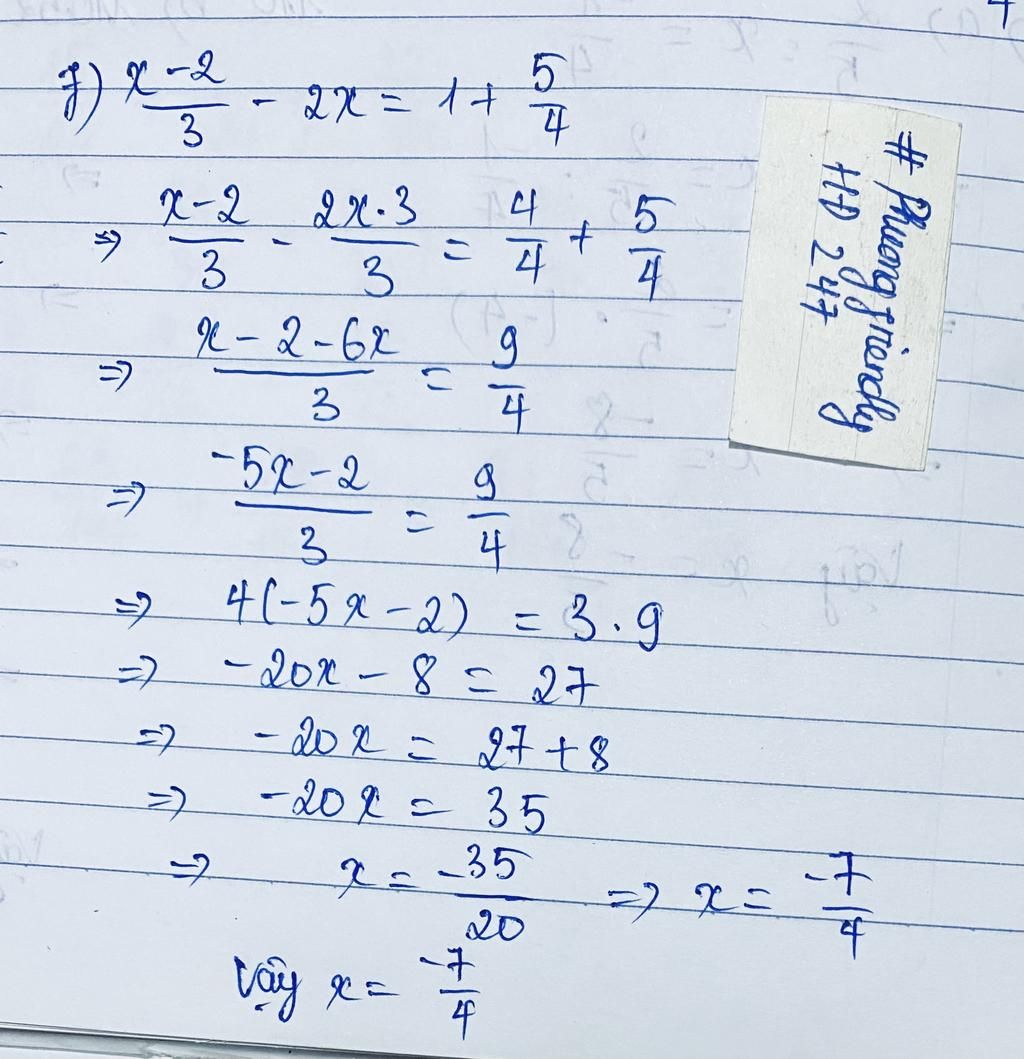 f) x-2/3 - 2x = 1 + 5/4
⇒ x-2/3 - 2x.3/3 = 4/4 + 5/4
⇒ x-2-6x/3 = 9/4
⇒ -5x-2/3 = 9/4
⇒ 4(-5x-2) = 3.9
⇒ -20x - 8 = 27
⇒ -20x = 27+8
⇒ -20x = 35
⇒ x = -35/20 ⇒ x = -7/4
Vậy x = -7/4
# Phuongfriendly
HD 247